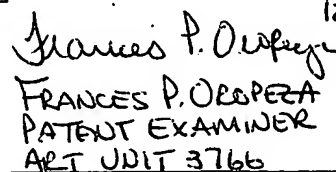 Frances P. Oropeza
FRANCES P. OROPEZA
PATENT EXAMINER
ART UNIT 3766